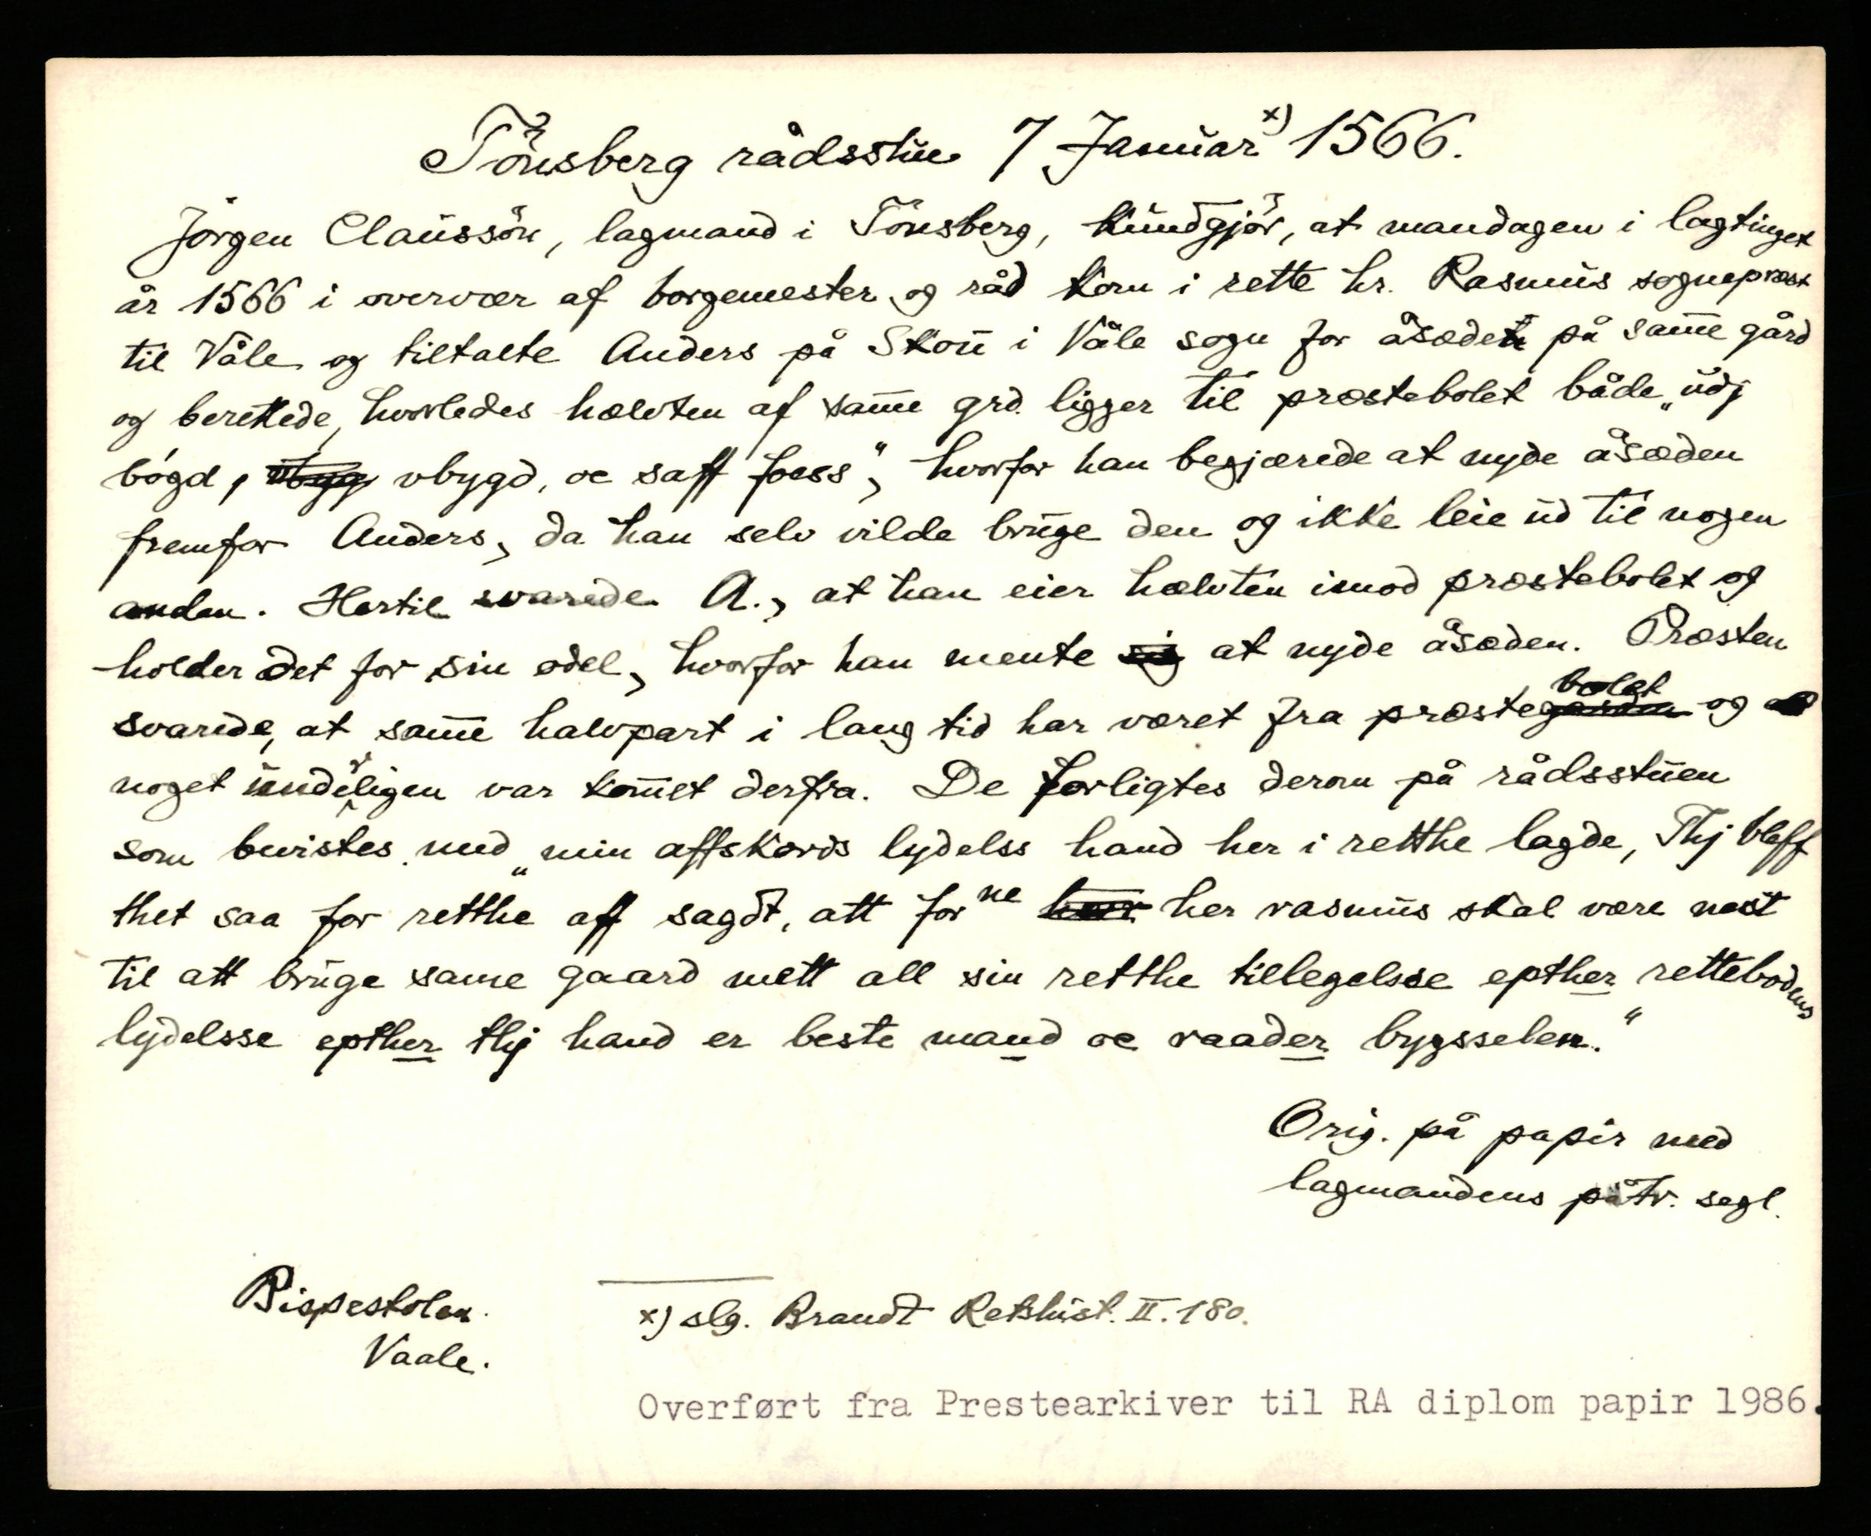 Tönsberg rådsstue 7 Januar x) 1566.
Jörgen Claussön, lagmand i Tönsberg, kundgjör, at mandagen i lagtinget
år 1566 i overvær af borgemester og råd kom i rette hr. Rasmus sognepræst
til Våle og tiltalte Anders på Skou i Våle sogn for åsædet på samme gård
og berettede, hvorledes hælvten af samme grd. ligger til præstebolet både „udj
bögd, ubyg ubygd, oc saff foess", hvorfor han begjærede at nyde åsæden
fremfor Anders, da han selv vilde bruge den og ikke leie ud til nogen
anden. Hertil svarede A., at han eier hælvten imod præstebolet og
holder det for sin odel, hvorfor han mente sig at nyde åsæden. Præsten
svarede, at samme halvpart i lang tid har været fra præstegården bolet og
noget underligen var kommet derfra. De forligtes derom på rådsstuen
som bevistes med „min affskeds lydelss hand her i retthe lagde, Thj bleff
thet saa for retthe aff sagdt, att for ne her her rasmus skal være nest
til att bruge same gaard mett all sin retthe tillegelsse epther rettebodens
lydelsse epther thj hand er beste mand oc raader bygsselen."
Orig. på papir med
lagmandens påtr. segl.
Bispestolen.
Vaale.
x) slg. Brandt Retshist. II. 180.
Overført fra Prestearkiver til RA diplom papir 1986.